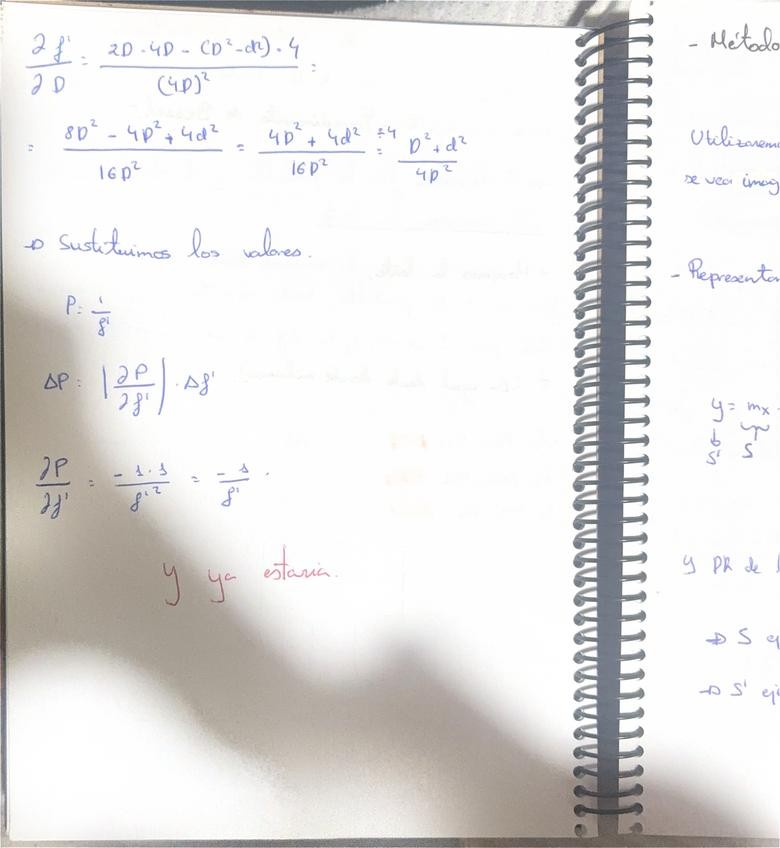 ∂f'/∂D = (2D · 4D - (D² - d²) · 4)/(4D)² =
= (8D² - 4D² + 4d²)/16D² = (4D² + 4d²)/16D² =÷4 (D² + d²)/4D²
→ Sustituimos los valores.
P = 1/f'
ΔP = |∂P/∂f'| · Δf'
∂P/∂f' = (-1 · 1)/f'² = -1/f' .
y ya estaria.
- Método
Utilizarem
se vea imag
- Representa
y = mx
↓
s' s
y PR de
→ S ej
→ S' eje